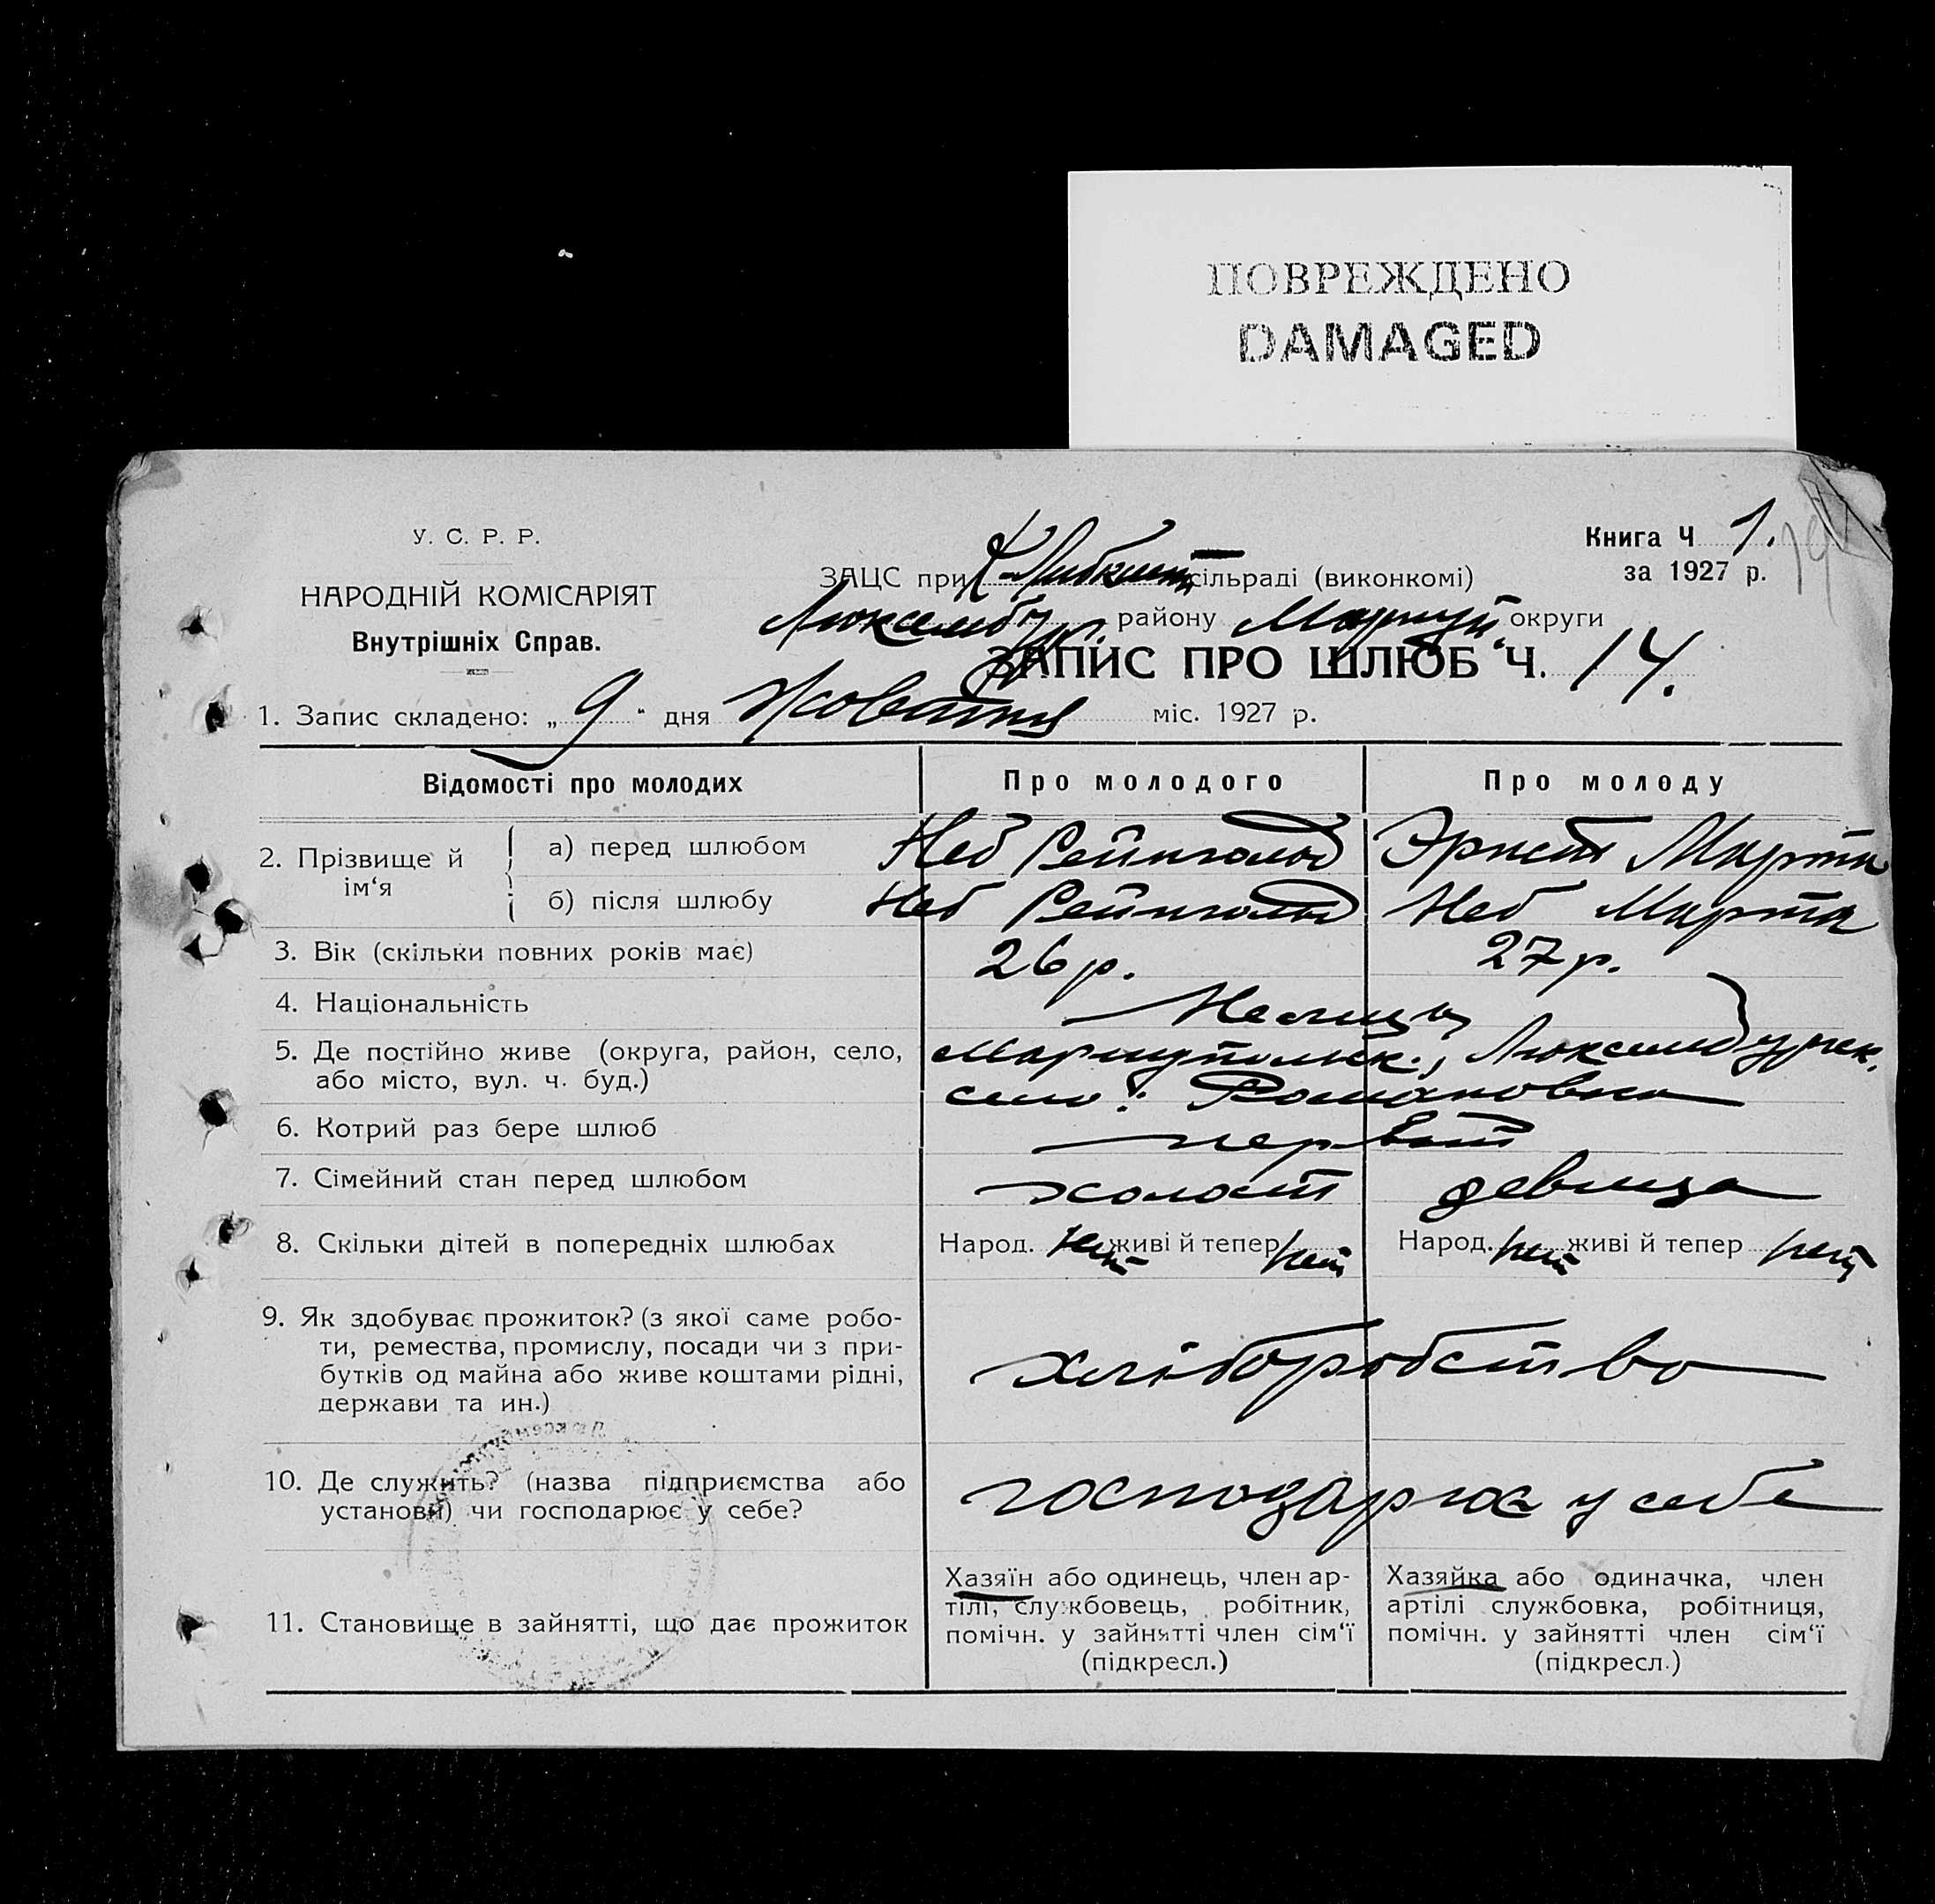 ПОВРЕЖДЕНО
DAMAGED
У. С. Р. Р.
НАРОДНІЙ КОМІСАРІЯТ
Внутрішніх Справ.
Книга Ч 1.
за 1927 р.
ЗАЦС при К-Либкнехт сільраді (виконкомі)
Люксембур. району Маріуп. округи
ЗАПИС ПРО ШЛЮБ Ч. 14.
1. Запис складено: „ 9 “ дня Жовтня міс. 1927 р.
Відомості про молодих Про молодого Про молоду
2. Прізвище й ім‘я
а) перед шлюбом Неб Рейнгольд Эрнст Марта
б) після шлюбу Неб Рейнгольд Неб Марта
3. Вік (скільки повних років має) 26 р. 27 р.
4. Національність Немцы
5. Де постійно живе (округа, район, село, Мариупольск., Люксембургск.
або місто, вул. ч. буд.) село: Романовка
6. Котрий раз бере шлюб первый
7. Сімейний стан перед шлюбом холост девица
8. Скільки дітей в попередніх шлюбах Народ. нет живі й тепер нет Народ. нет живі й тепер нет
9. Як здобуває прожиток? (з якої саме робо-
ти, ремества, промислу, посади чи з при-
бутків од майна або живе коштами рідні,
держави та ин.)
хліборобство
10. Де служить? (назва підприємства або
установи) чи господарює у себе?
господарює у себе
11. Становище в зайнятті, що дає прожиток
Хазяїн або одинець, член ар-
тілі, службовець, робітник,
помічн. у зайнятті член сім‘ї
(підкресл.)
Хазяйка або одиначка, член
артілі службовка, робітниця,
помічн. у зайнятті член сім‘ї
(підкресл.)